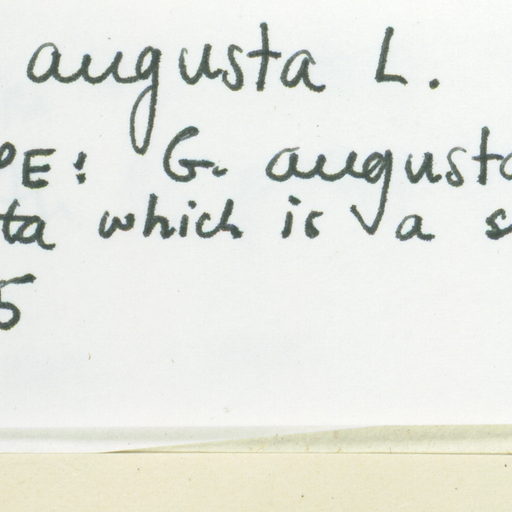 augusta L.
PE: G. augusta
ta which is a s
5